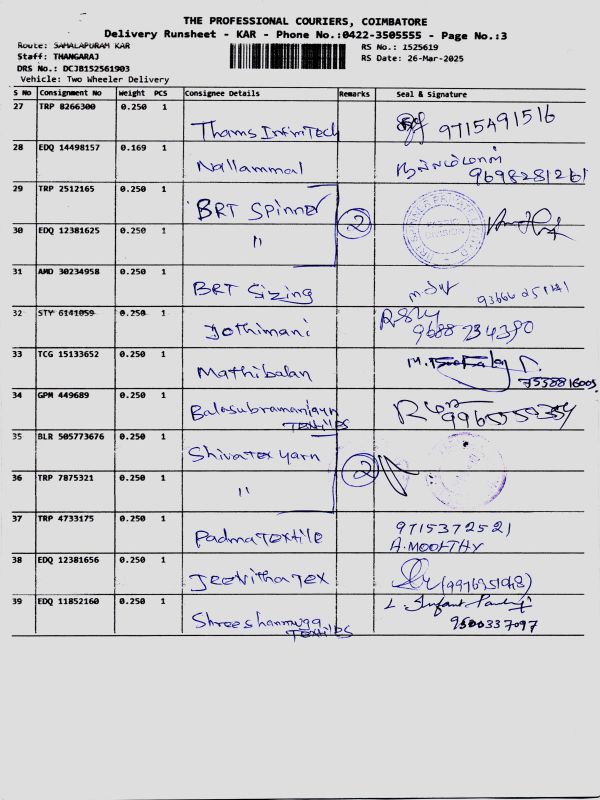 THE PROFESSIONAL COURIERS, COIMBATORE
Delivery Runsheet - KAR - Phone No.:0422-3505555 - Page No.:3
Route: SAMALAPURAM KAR
RS No.: 1525619
Staff: THANGARAJ
RS Date: 26-Mar-2025
DRS No.: DCJB152561903
Vehicle: Two Wheeler Delivery
S No Consignment No Weight PCS Consignee Details Remarks Seal & Signature
27 TRP 8266300 0.250 1 Thams InfiniTech 9715491516
28 EDQ 14498157 0.169 1 Nallammal நல்லம்மாள்
9698281261
29 TRP 2512165 0.250 1 BRT Spinner 2
30 EDQ 12381625 0.250 1 "
31 AMD 30234958 0.250 1 BRT Sizing
32 STY 6141059 0.250 1 Jothimani
9688234390
33 TCG 15133652 0.250 1 Mathibalan
34 GPM 449689 0.250 1 Balasubramaniyan
Textiles
35 BLR 505773676 0.250 1 Shivatex yarn 2
36 TRP 7875321 0.250 1 "
37 TRP 4733175 0.250 1 Padma Textile 9715372521
A. MOORTHY
38 EDQ 12381656 0.250 1 Jeevitha Tex
39 EDQ 11852160 0.250 1 Shree shanmuga
Textiles
9500337097